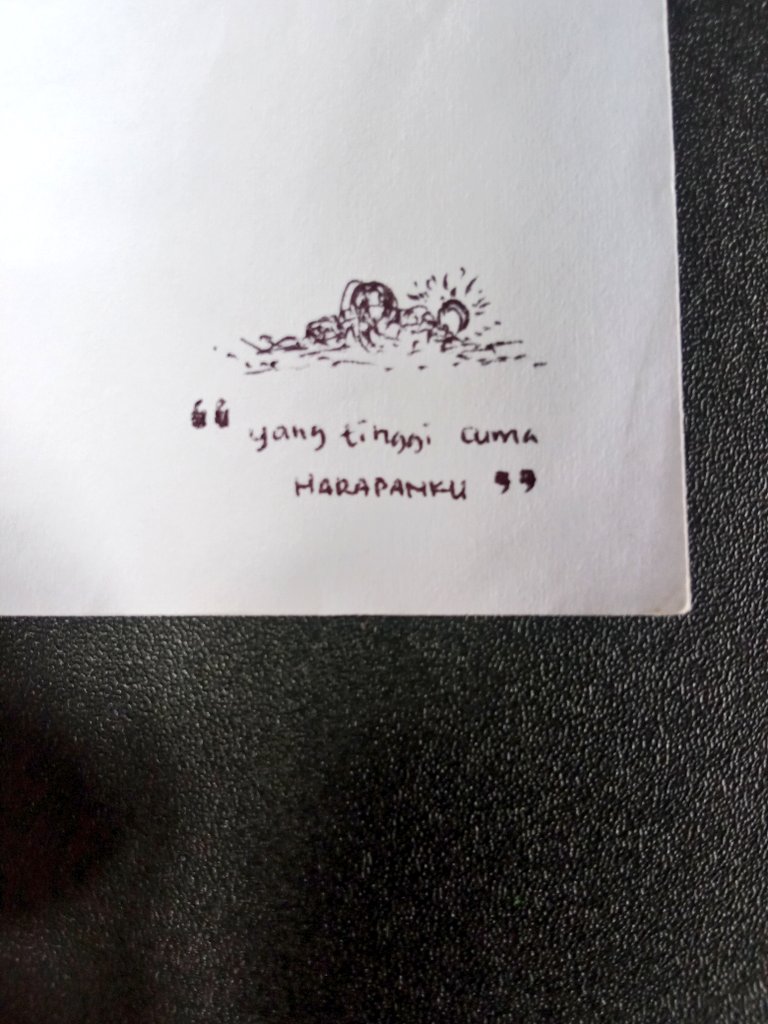 “ yang tinggi cuma
HARAPANKU ”